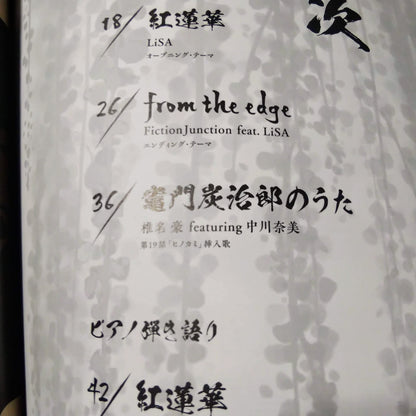 次
18/ 紅蓮華
LiSA
オープニング・テーマ
26/ from the edge
FictionJunction feat. LiSA
エンディング・テーマ
36/ 竈門炭治郎のうた
椎名 豪 featuring 中川奈美
第19話「ヒノカミ」挿入歌
ピアノ弾き語り
42/ 紅蓮華